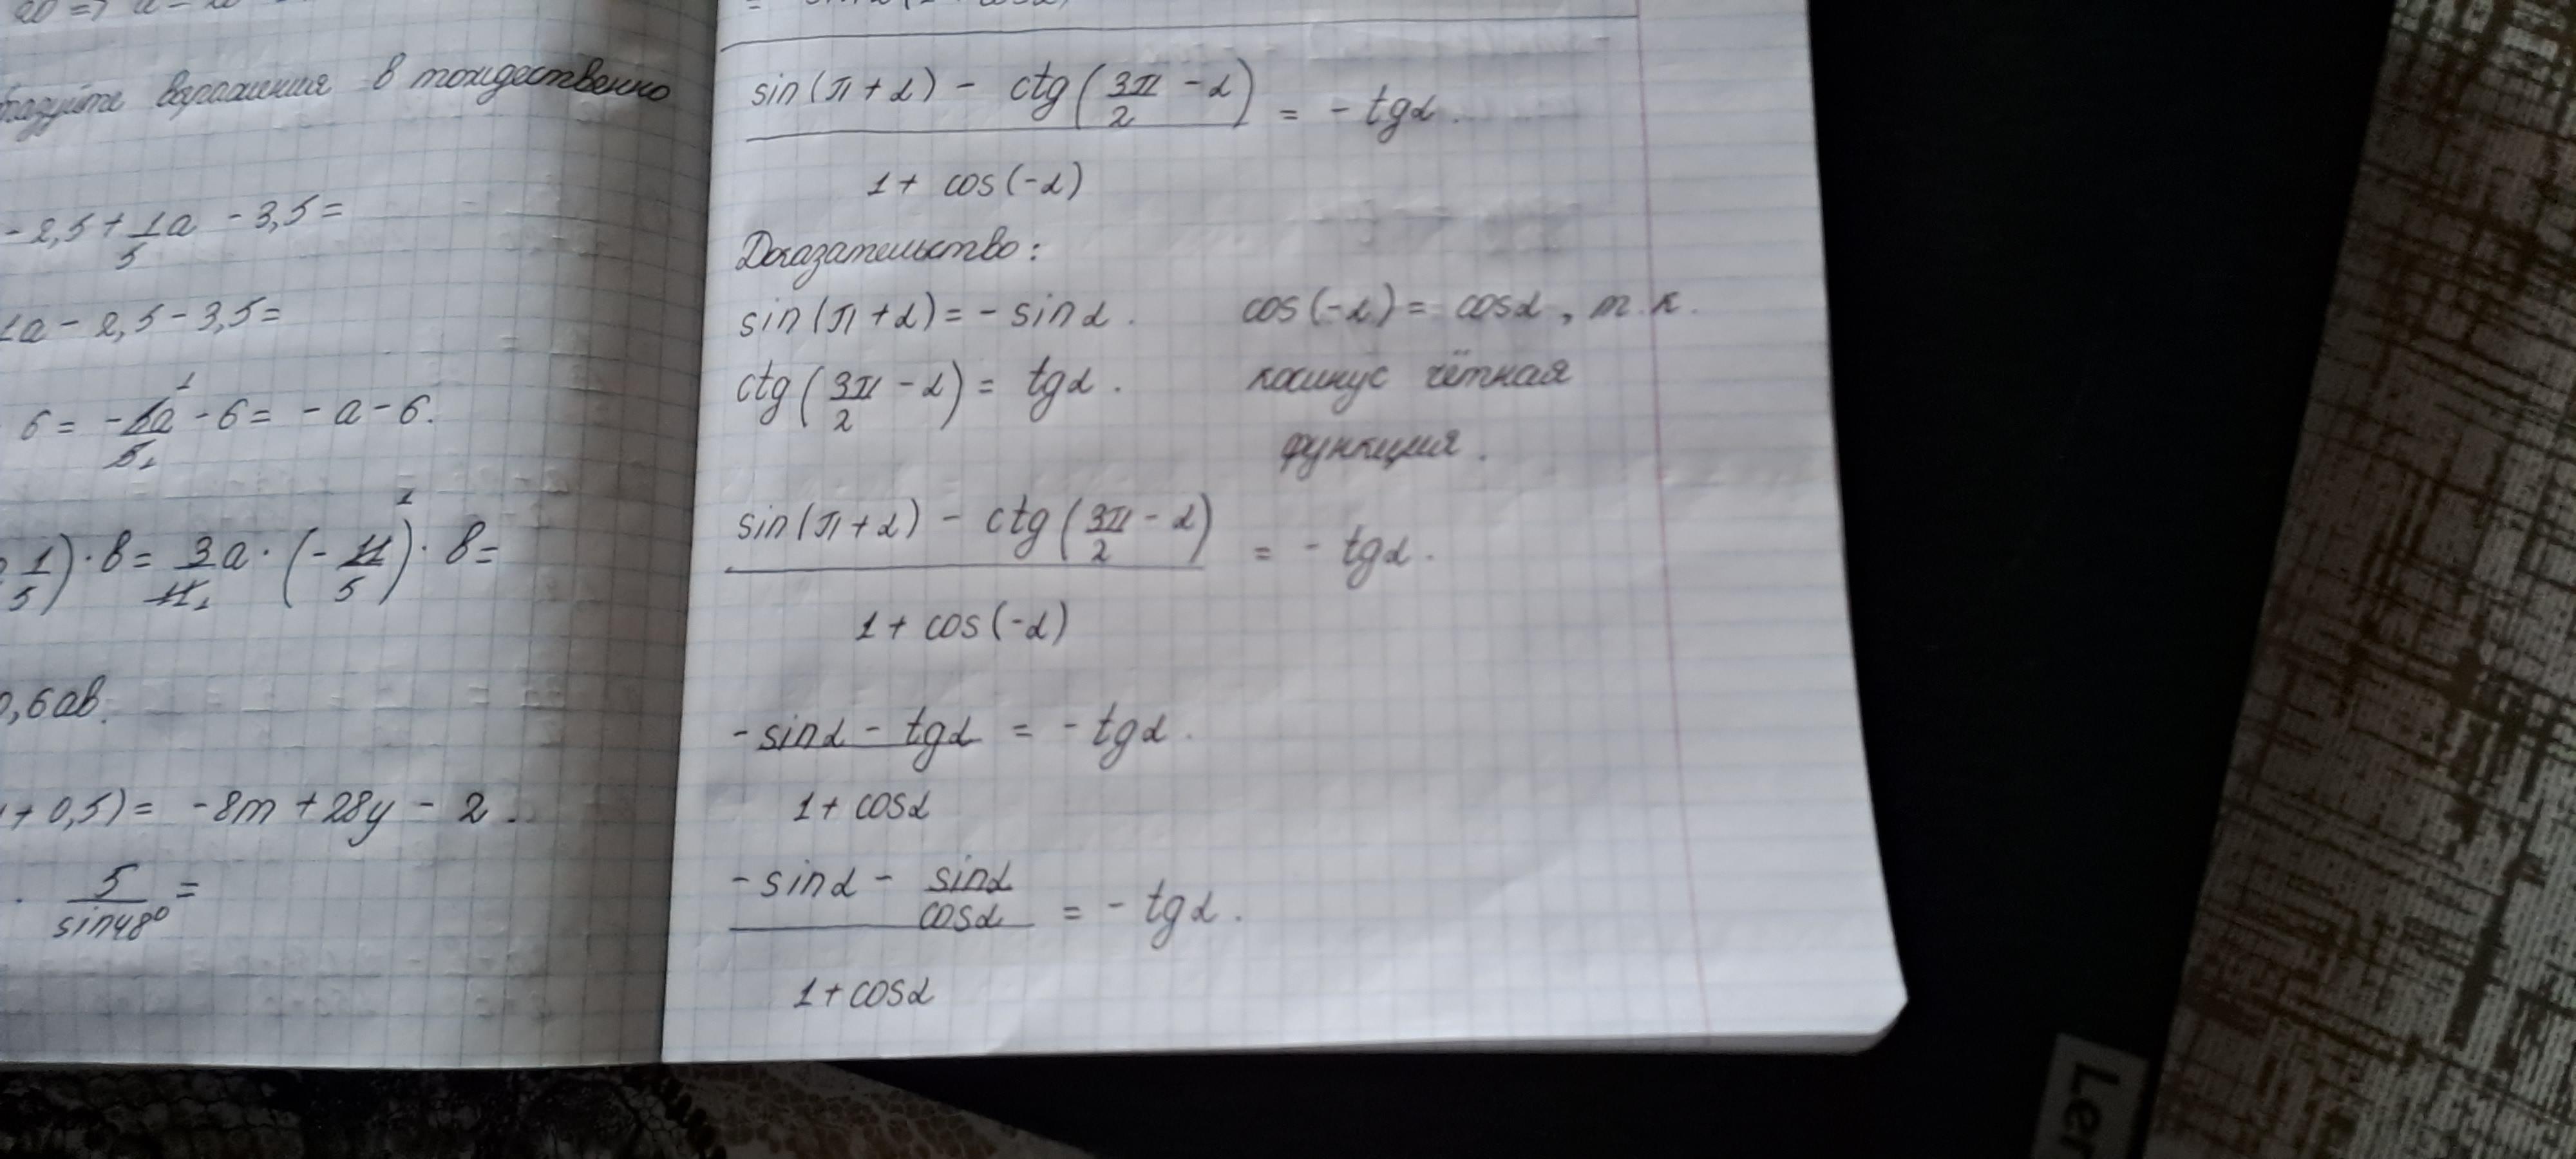 в тождественно
-2,5 + 1/5 a - 3,5 =
1a - 2,5 - 3,5 =
6 = -5a/5 - 6 = -a - 6.
1/5) · в = 3/11 a · (-11/5) · в =
0,6ав.
+ 0,5) = -8m + 28y - 2.
· 5/sin48° =
(sin(π + α) - ctg(3π/2 - α))/(1 + cos(-α)) = -tgα.
Доказательство:
sin(π + α) = -sinα. cos(-α) = cosα, т.к.
ctg(3π/2 - α) = tgα. косинус чётная
функция.
(sin(π + α) - ctg(3π/2 - α))/(1 + cos(-α)) = -tgα.
(-sinα - tgα)/(1 + cosα) = -tgα.
(-sinα - sinα/cosα)/(1 + cosα) = -tgα.
Ler